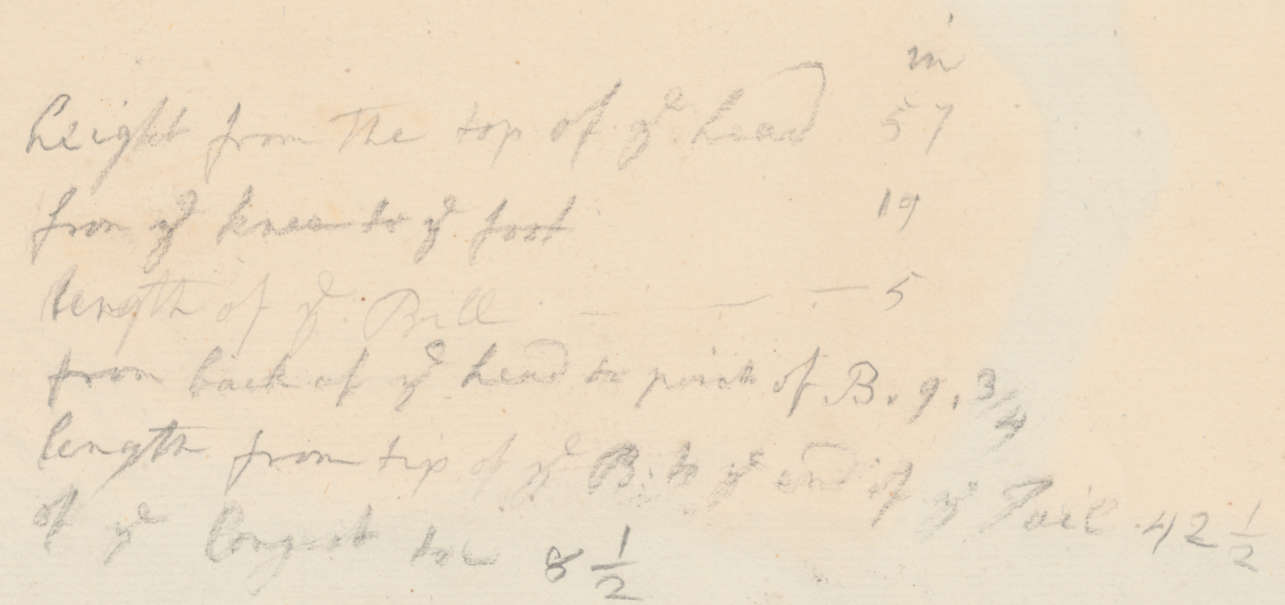 in
height from The top of ye. head 57
from ye knee to ye. foot 19
length of ye. Bill — — 5
from back of ye head to point of B. 9. 3/4
length from tip of ye B. to ye end of ye Tail 42 1/2
of ye longest toe 8 1/2